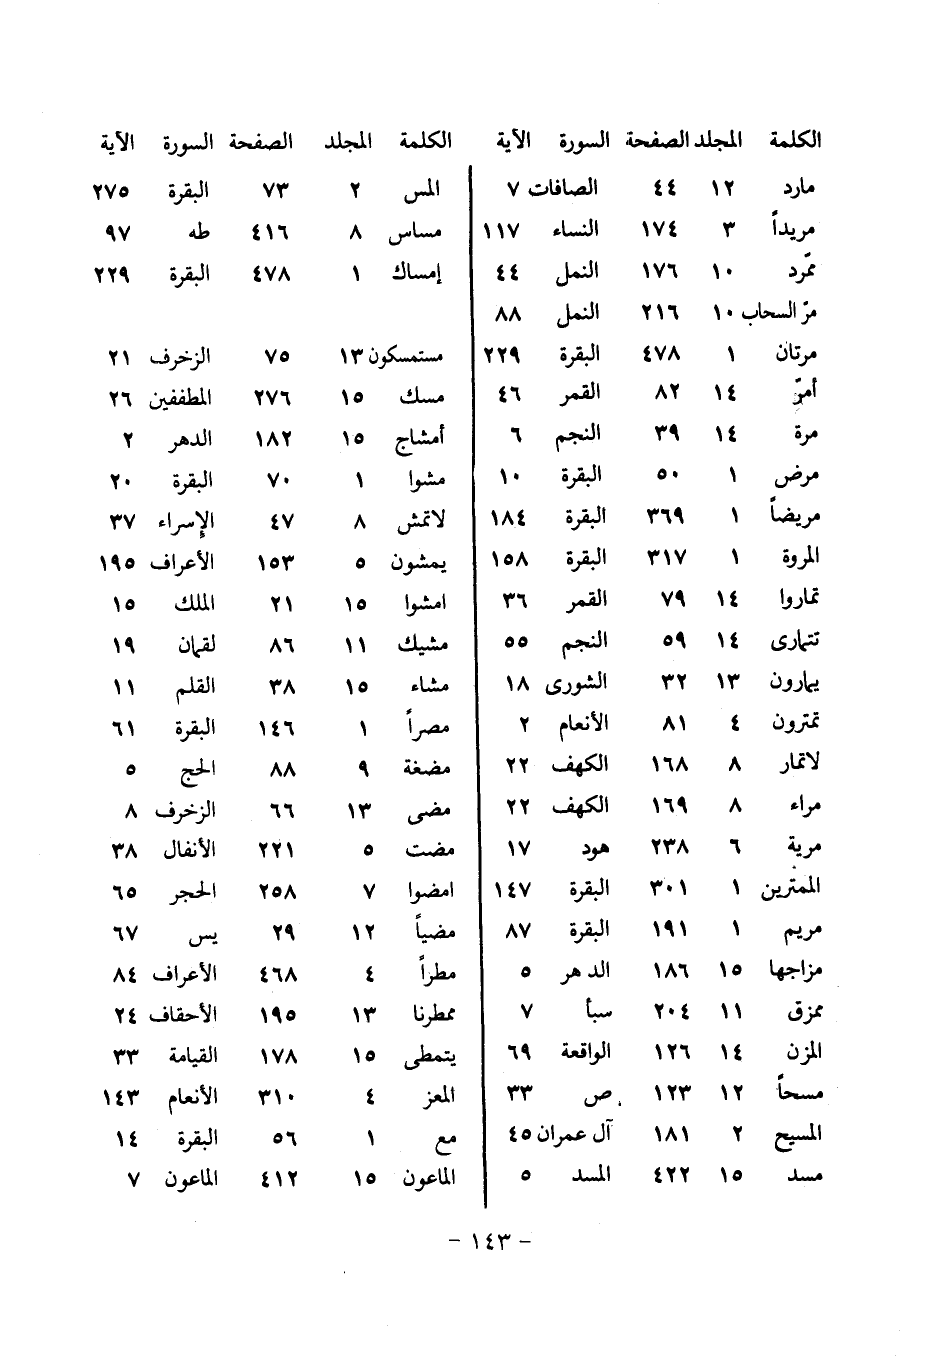 الكلمة المجلد الصفحة السورة الآية
مارد ١٢ ٤٤ الصافات ٧
مريداً ٣ ١٧٤ النساء ١١٧
ممّرد ١٠ ١٧٦ النمل ٤٤
مرّ السحاب ١٠ ٢١٦ النمل ٨٨
مرتان ١ ٤٧٨ البقرة ٢٢٩
أمرّ ١٤ ٨٢ القمر ٤٦
مرة ١٤ ٣٩ النجم ٦
مرض ١ ٥٠ البقرة ١٠
مريضاً ١ ٣٦٩ البقرة ١٨٤
المروة ١ ٣١٧ البقرة ١٥٨
تماروا ١٤ ٧٩ القمر ٣٦
تتمارى ١٤ ٥٩ النجم ٥٥
يمارون ١٣ ٣٢ الشورى ١٨
تمترون ٤ ٨١ الأنعام ٢
لاتمار ٨ ١٦٨ الكهف ٢٢
مراء ٨ ١٦٩ الكهف ٢٢
مرية ٦ ٢٣٨ هود ١٧
الممترين ١ ٣٠١ البقرة ١٤٧
مريم ١ ١٩١ البقرة ٨٧
مزاجها ١٥ ١٨٦ الدهر ٥
ممزق ١١ ٢٠٤ سبأ ٧
المزن ١٤ ١٢٦ الواقعة ٦٩
مسحاً ١٢ ١٢٣ ص ٣٣
المسيح ٢ ١٨١ آل عمران ٤٥
مسد ١٥ ٤٢٢ المسد ٥
الكلمة المجلد الصفحة السورة الآية
المس ٢ ٧٣ البقرة ٢٧٥
مساس ٨ ٤١٦ طه ٩٧
إمساك ١ ٤٧٨ البقرة ٢٢٩
مستمسكون ١٣ ٧٥ الزخرف ٢١
مسك ١٥ ٢٧٦ المطففين ٢٦
أمشاج ١٥ ١٨٢ الدهر ٢
مشوا ١ ٧٠ البقرة ٢٠
لاتمش ٨ ٤٧ الإسراء ٣٧
يمشون ٥ ١٥٣ الأعراف ١٩٥
امشوا ١٥ ٢١ الملك ١٥
مشيك ١١ ٨٦ لقمان ١٩
مشاء ١٥ ٣٨ القلم ١١
مصراً ١ ١٤٦ البقرة ٦١
مضغة ٩ ٨٨ الحج ٥
مضى ١٣ ٦٦ الزخرف ٨
مضت ٥ ٢٢١ الأنفال ٣٨
امضوا ٧ ٢٥٨ الحجر ٦٥
مضياً ١٢ ٢٩ يس ٦٧
مطراً ٤ ٤٦٨ الأعراف ٨٤
ممطرنا ١٣ ١٩٥ الأحقاف ٢٤
يتمطى ١٥ ١٧٨ القيامة ٣٣
المعز ٤ ٣١٠ الأنعام ١٤٣
مع ١ ٥٦ البقرة ١٤
الماعون ١٥ ٤١٢ الماعون ٧
- ١٤٣ -